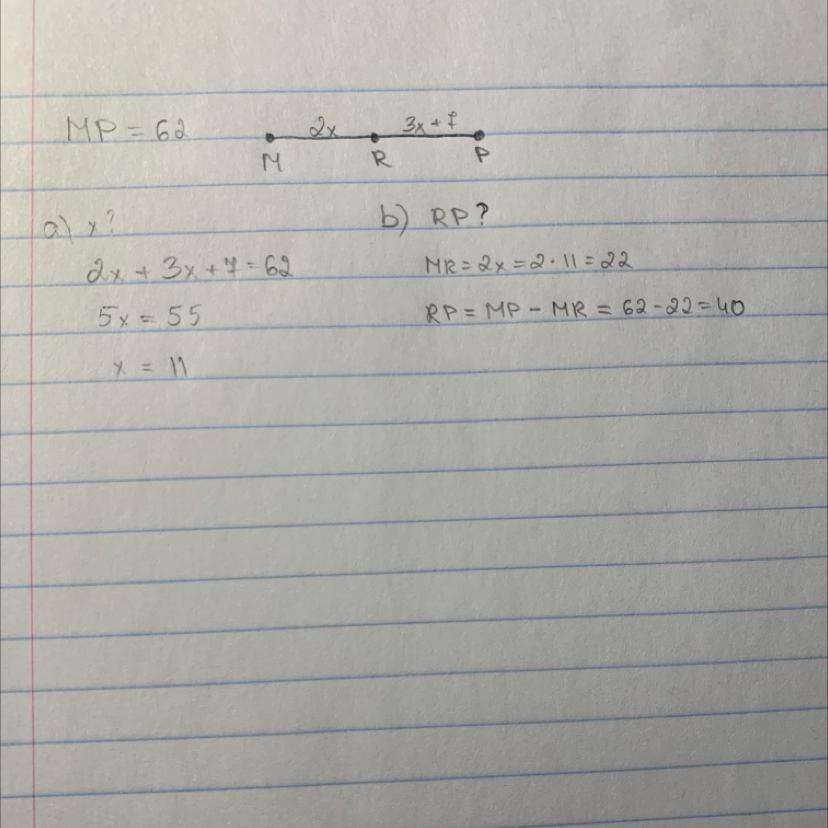 MP = 62
2x 3x + 7
M R P
a) x?
2x + 3x + 7 = 62
5x = 55
x = 11
b) RP?
MR = 2x = 2 · 11 = 22
RP = MP - MR = 62 - 22 = 40